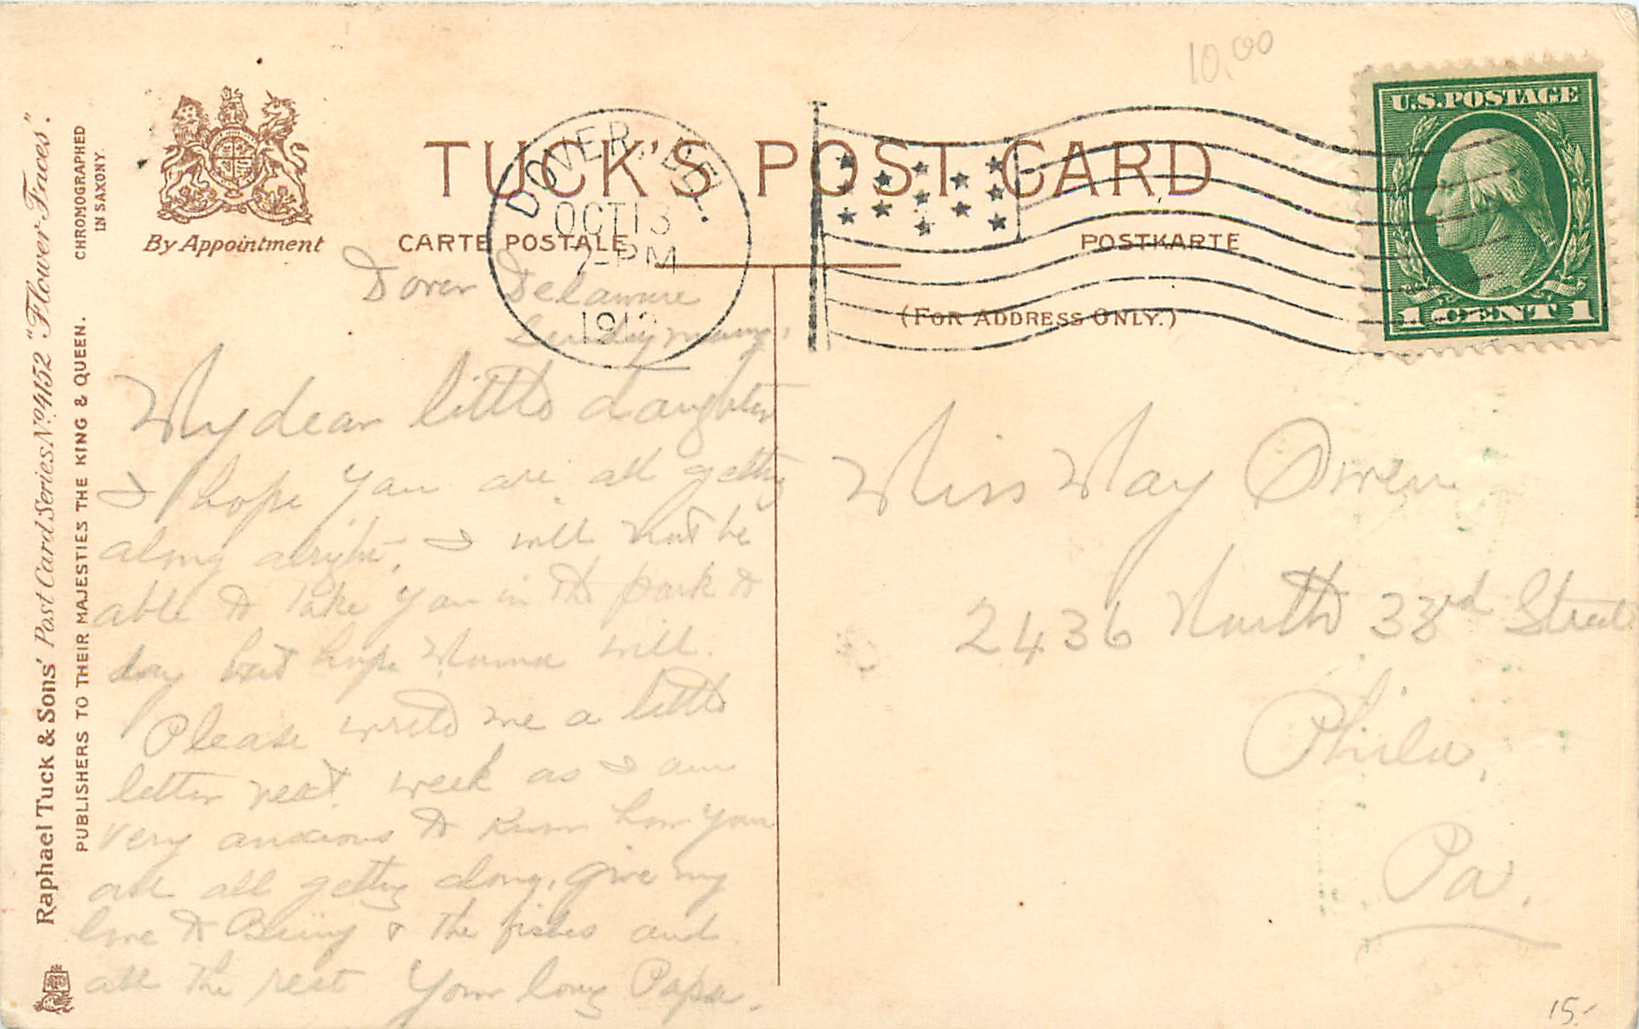 10.00
U.S. POSTAGE
1 CENT 1
TUCK'S POST CARD
CARTE POSTALE
POSTKARTE
(FOR ADDRESS ONLY.)
By Appointment
DOVER, DEL.
OCT 13
2-PM
191
Raphael Tuck & Sons' Post Card Series No 4152 "Flower Faces".
PUBLISHERS TO THEIR MAJESTIES THE KING & QUEEN.
CHROMOGRAPHED
IN SAXONY.
Dover Delaware
Sunday
My dear little daughter
I hope you are all getting
along alright. I will not be
able to take you in the park to
day but hope Mama will.
Please write me a little
letter next week as I am
very anxious to know how you
are all getting along. Give my
love to & the fishes and
all the rest Your loving Papa.
Miss May Owen
2436 North 33rd Street
Phila,
Pa.
15.-